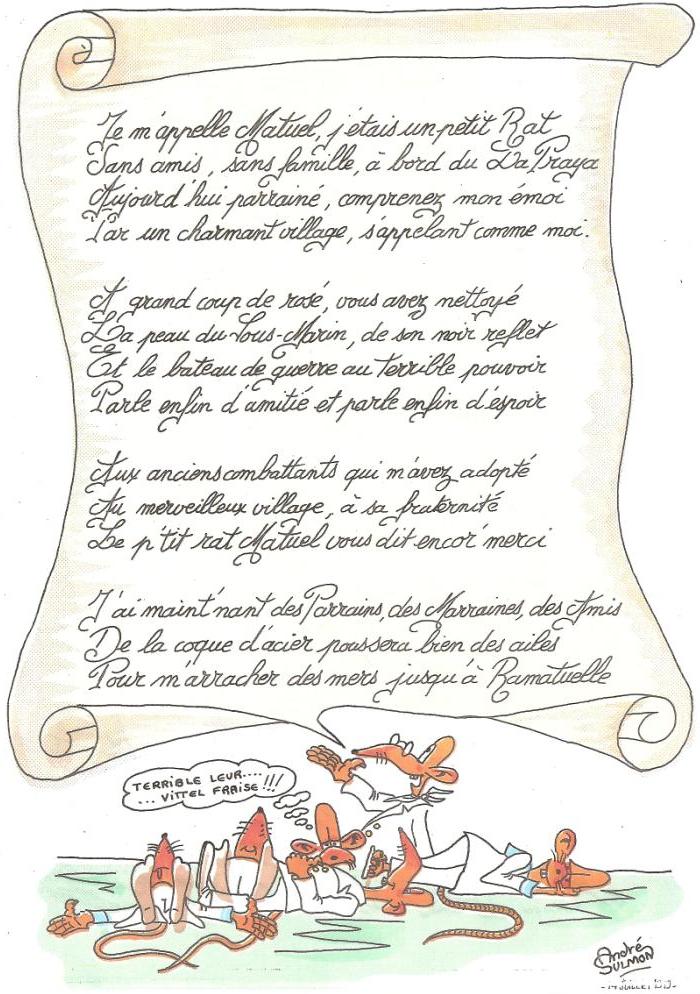 Je m'appelle Matuel, j'étais un petit Rat
Sans amis, sans famille, à bord du La Praya
Aujourd'hui parrainé, comprenez mon émoi
Par un charmant village, s'appelant comme moi.
A grand coup de rosé, vous avez nettoyé
La peau du Sous-Marin, de son noir reflet
Et le bateau de guerre au terrible pouvoir
Parle enfin d'amitié et parle enfin d'espoir
Aux anciens combattants qui m'avez adopté
Au merveilleux village, à sa fraternité
Le p'tit rat Matuel vous dit encor' merci
J'ai maint'nant des Parrains, des Marraines, des Amis
De la coque d'acier poussera bien des ailes
Pour m'arracher des mers jusqu'à Ramatuelle
TERRIBLE LEUR....
... VITTEL FRAISE !!!
André
SULMON
JUILLET